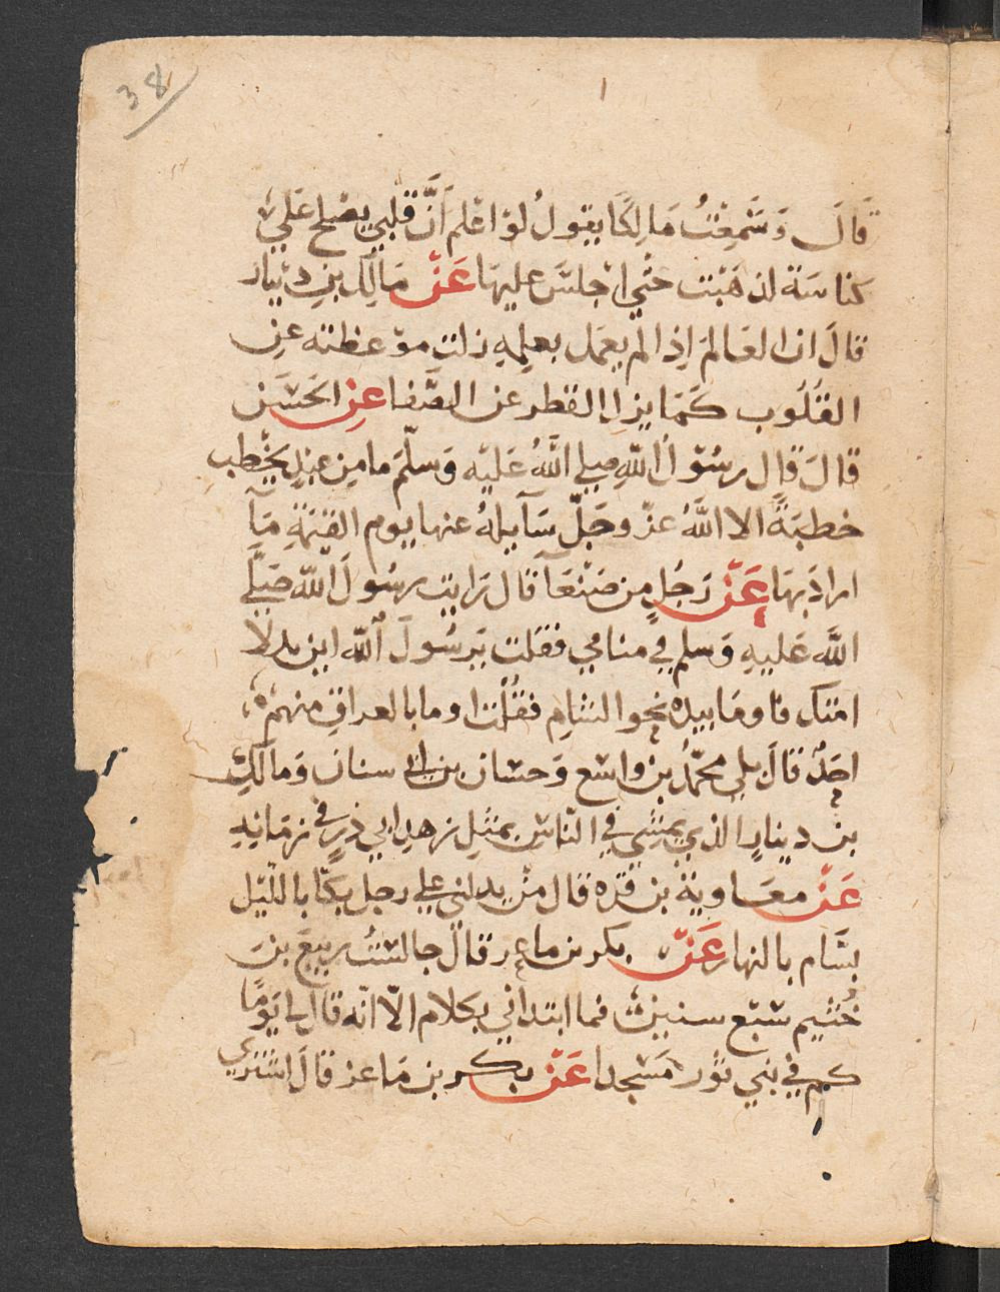 38
قَالَ وَسَمِعْتُ مَالِكًا يقولُ لَوْ اعْلم أَنَّ قَلْبي يصْلح عَلي
كناسَة لذهَبْت حَتي اجلسَ عليهَا عَنْ مَالِك بن دينار
قالَ ان العَالمَ اِذا لم يعمَل بعلمِهِ زلت موْعظته عن
القُلُوب كَمَا يزل القطر عن الصَّفا عن الحَسَن
قالَ قال رسُوْل اللّهِ صلي اللَّهُ عَلَيْهِ وَسلّمَ ما من عبْدٍ يخْطب
خطبَةً الا اللَّهُ عزّ وجَلّ سَآيلهُ عنها يوم القيٰمَةِ مَآ
ارادَ بهَا عَنْ رَجُلٍ من صَنْعَآ قال رَايت رسُولَ اللّه صَلّي
اللَّه عَليهِ وَسلم في منامي فقلت يَرسُولَ اللّه اين بدلا
امتك فاومَا بيده نحو الشام فقُلْت اوما بالعراق منهم
احَدٌ قالَ بلي محمّدُ بن واسْع وَحسّان بن ابي سنان وَمالك
بن دينارٍ الذي يمشِي في النّاس بمثلِ زهد ابي ذرٍ في زمَانِهِ
عَنْ معَاوية بن قرّه قال مَنْ يدلني علي رجل بكّا بالليْل
بسَّام بالنهار عَنْ بكر بن ماعز قال جالسْتُ ربيعَ بن
خُثيم سَبْع سنين فما ابتداني بكلام الّا انّه قال لي يَوْمًا
كم في بَني ثوْر مَسْجدا عَنْ بكر بن مَاعز قالَ اشتري